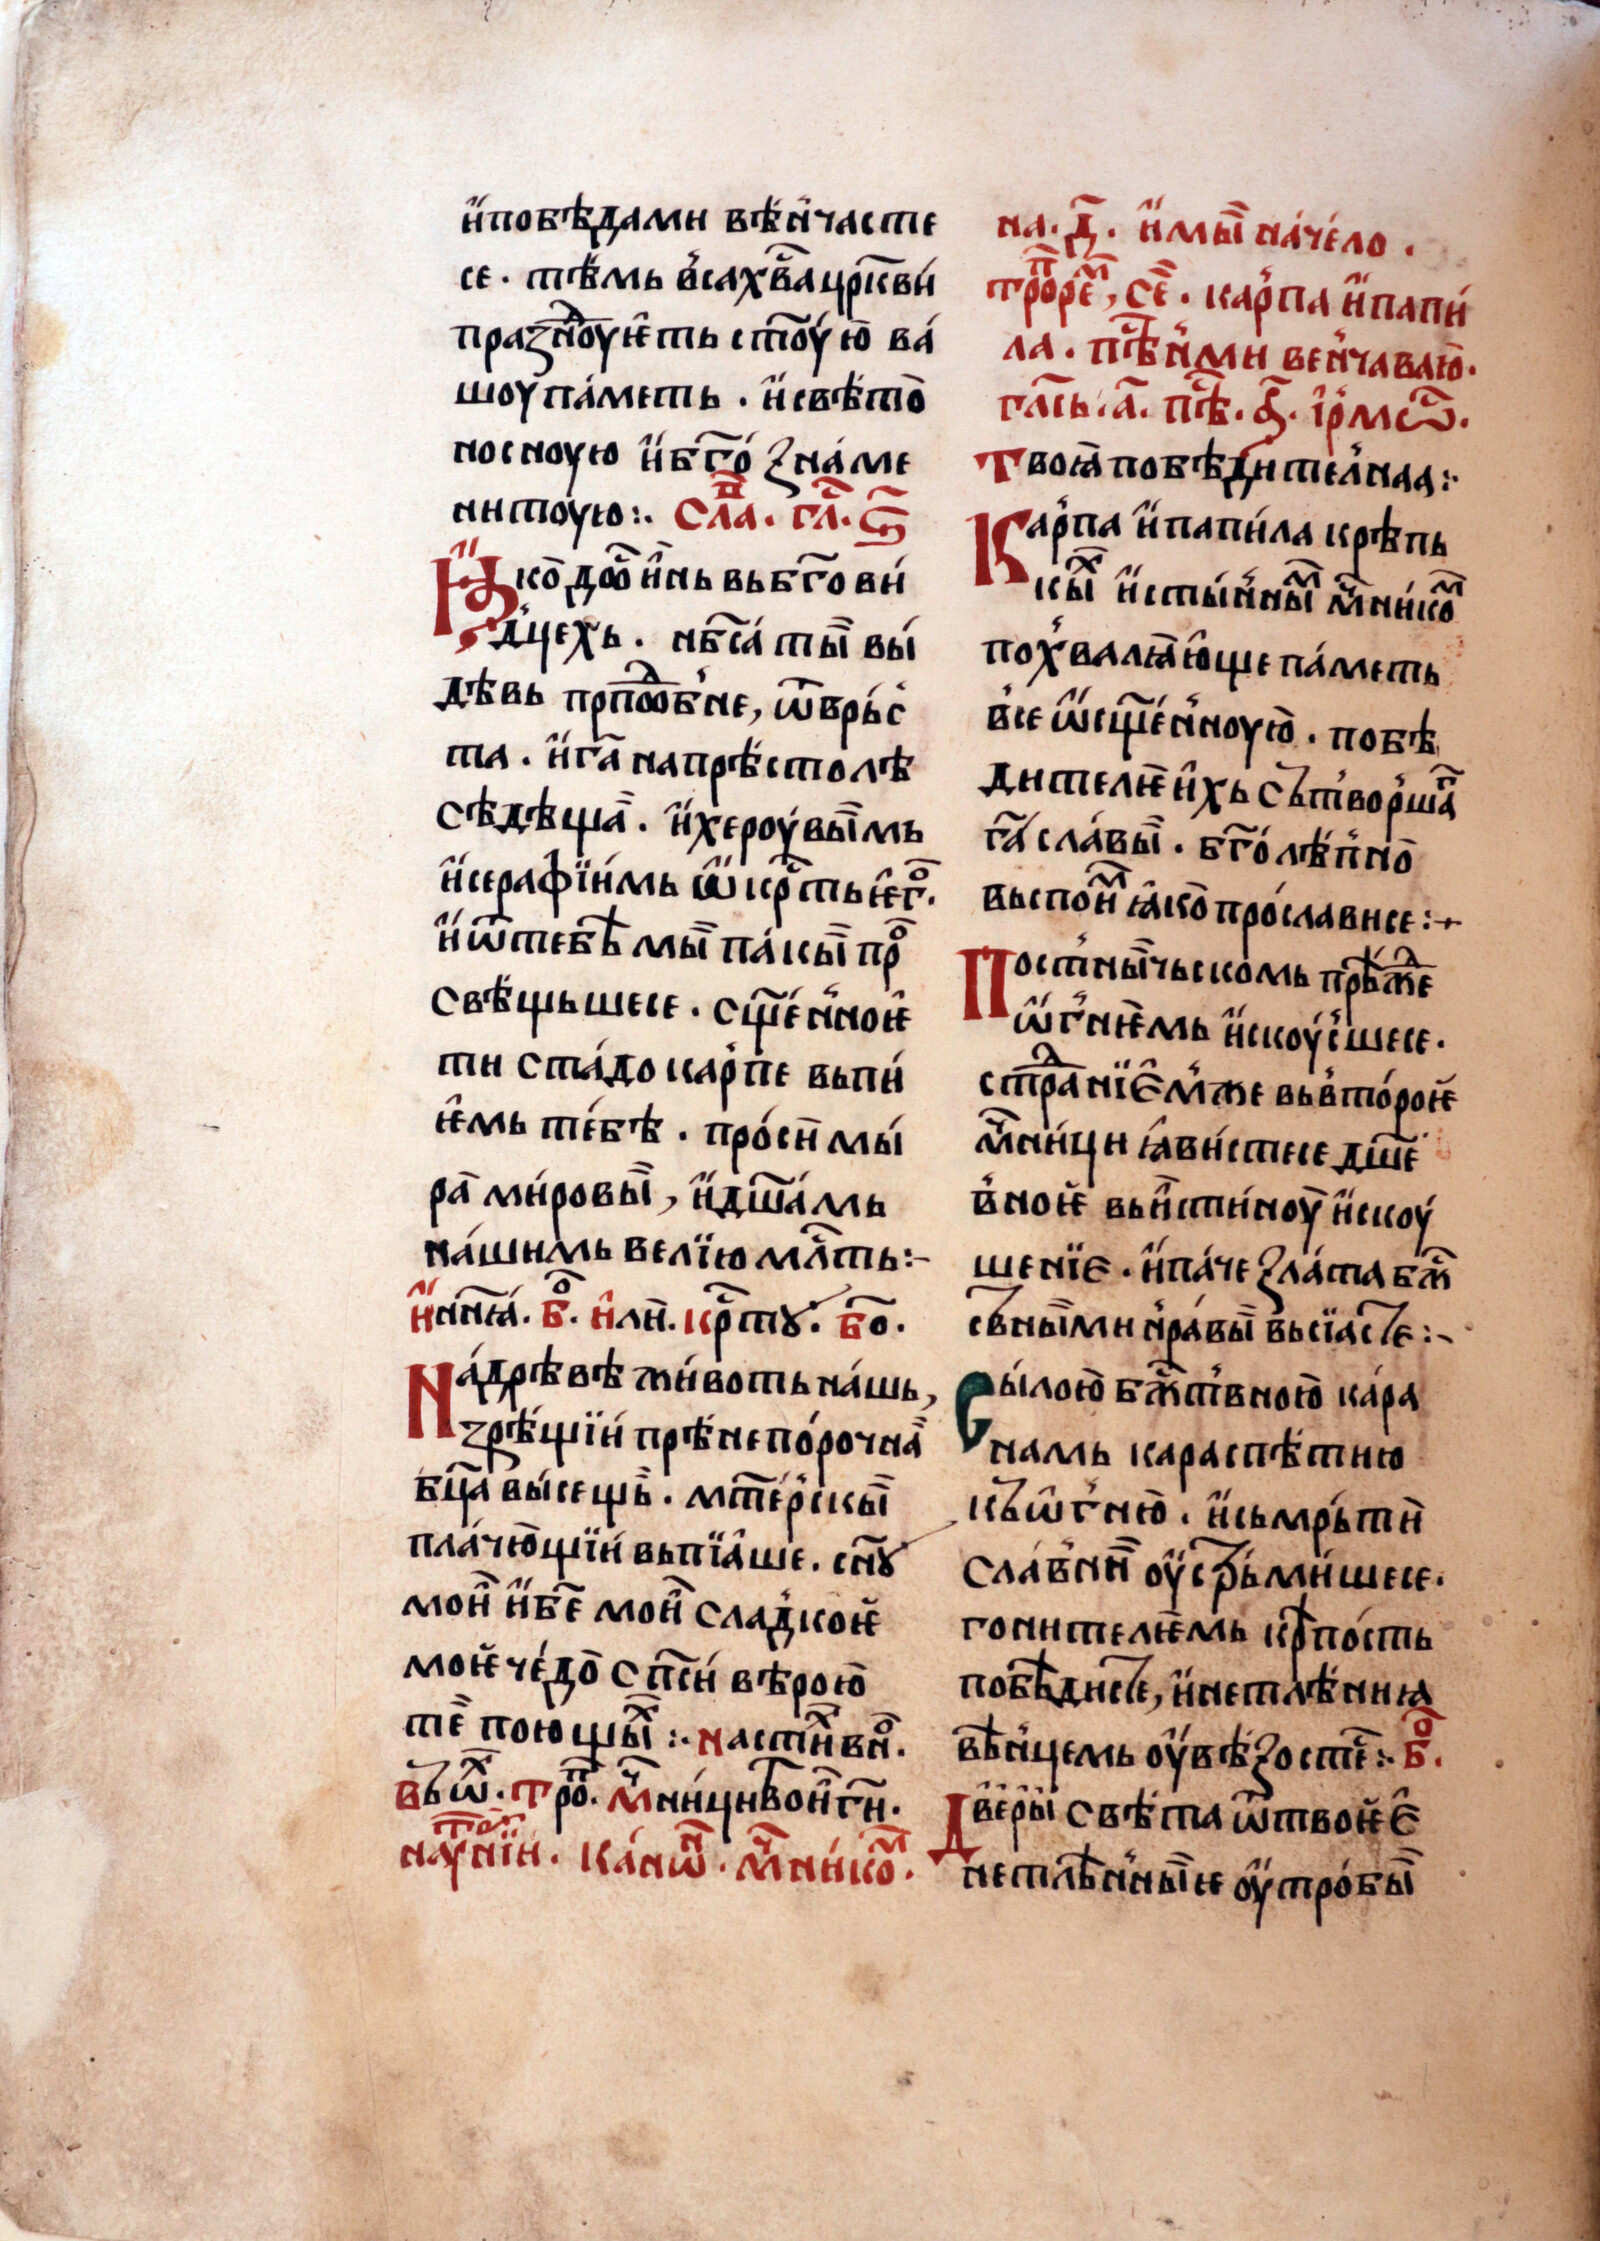 и҆победами вѣн҆часте
се · тѣмь в҆сахв҃а цр҃кви
празно́уѥть ст҃оую ва́
шоу па́меть · и҆свѣ́то
носноую и҆бг҃о́ зна́ме
нитоую :· Сла҃ · гл҃ · ѕ҃
Ꙗ҆ко дш҃о и҆нь вьбг҃ови́
д҆цехь · нб҃са́ ты вы́
дѣвь прпⷣобн҆е, ѿврь́с
та · и҆г҃а на прѣ́столѣ
сѣдеща · и҆хероу́вы́мь
и҆серафїи́мь ѡ҆кр҃сть ѥгоⷪ҇ ·
и҆ѿтебѣ мы̀ па́кы̀ прⷪ҇
свѣ́щьшесе · сщ҃е́н҆ноѥ
ти ста́до кар҆пе вьпи́
ѥмь те́бѣ · про́сѝ мы́
ра̀ ми́ровы̀, и҆дш҃а́мь
на́шимь велїю мл҃ть :–
И҆ нн҃ꙗ́ · бⷪ҇ · и҆лѝ · кр҃сту · бо҃ ·
На́дрѣвѣ жи́воть на́шь,
зрѣ́щїи прѣ́непо́рочна̀
бц҃а вы́сещь̀ · мт҃е́р҆скы̀
пла́чю̀щїи вьпїа̂ше · сн҃ꙋ
мои̂ и҆бж҃е мои̂ слад҆коѥ
моѥ че́до̀ сп҃си вѣрою̀
те̂ поющыⷯ :· настиⷯв҆нⷪ҇ ·
Въѡⷯ · трⷪ҇ · мⷱ҇ницнвои̂ гн҃ ·
наут҃ рнїи · ка́нѡⷩ҇ · м҃чникоⷨ ·
на · д҃ · и҆мы̀ на́че́ло ·
трⷪ҇реⷨ, се̂ · кар҆па и҆папи́
ла · пѣⷭ҇н҆ми вен҆чаваю̀ ·
гла҃сь · а҃ · пѣ҃ · а҃ · ї҆рмѡⷭ҇ ·
Твоꙗ̀ побѣдител҆наа :·
Кар҆па и҆папи́ла крѣпь
кыⷯ и҆сты́н҆ныⷨ мⷱ҇никоⷨ
пох҆валꙗ́ю̂ще па́меть
в҆се ѡ҆сщ҃е́н҆ноую̀ · побѣ
дителѥ и҆хь сът҆вор҆шаⷢ҇
г҃а сла́вы̀ · бг҃о́лѣп҆но̀
выспоиⷨ ꙗ҆ко̀ про́слависе :·+
Пост҆ны̀чьскомь прѣжⷣе
ѡ҆г҆нѥмь и҆скоу́с҆шесе ·
страⷣнїѥ̂м҆же вьв҆то́роѥ
мⷱ҇ници ꙗ҆ви́стесе дш҃е
в҆ноѥ вьи҆стиноу̀ и҆скоу́
шенїе · и҆па́че зла́та бж҃
ствны̀ми н҆ра́вы̀ вьсїасте :–
Сы́лою̀ бж҃ст҆вною̀ ка́ра
намь ка распѣтню
къѡ҆г҆ню̀ · и҆сьмрь́тѝ
сла́в҆нѝ оу҆стрьми́шесе ·
гонителѥмь крѣпо́сть
побѣднсте, и҆нетлѣ́ниꙗ
вѣн҆цемь оу҆вѣ́зосте̂ :· бⷪ҇ ·
Две́ры свѣ́та ѿтвоѥѥ̂
нетлѣн҆ны̀ѥ оу҆тро́бы̀